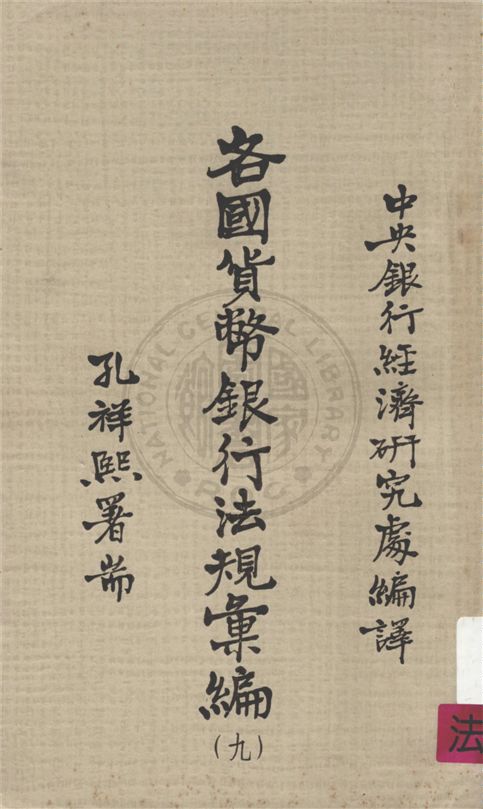 中央銀行經濟研究處編譯
各國貨幣銀行法規彙編
(九)
孔祥熙署耑
法
NATIONAL CENTRAL LIBRARY